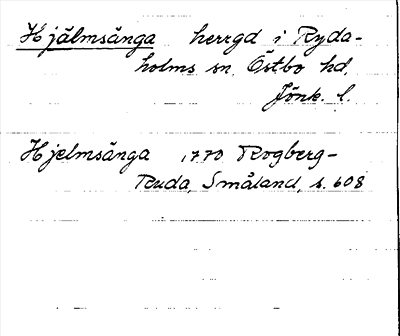 Hjälmsänga herrgd i Ryda-
holms sn, Östbo hd,
Jönk. l.
Hjelmsänga 1770 Rogberg-
Ruda, Småland, s. 608